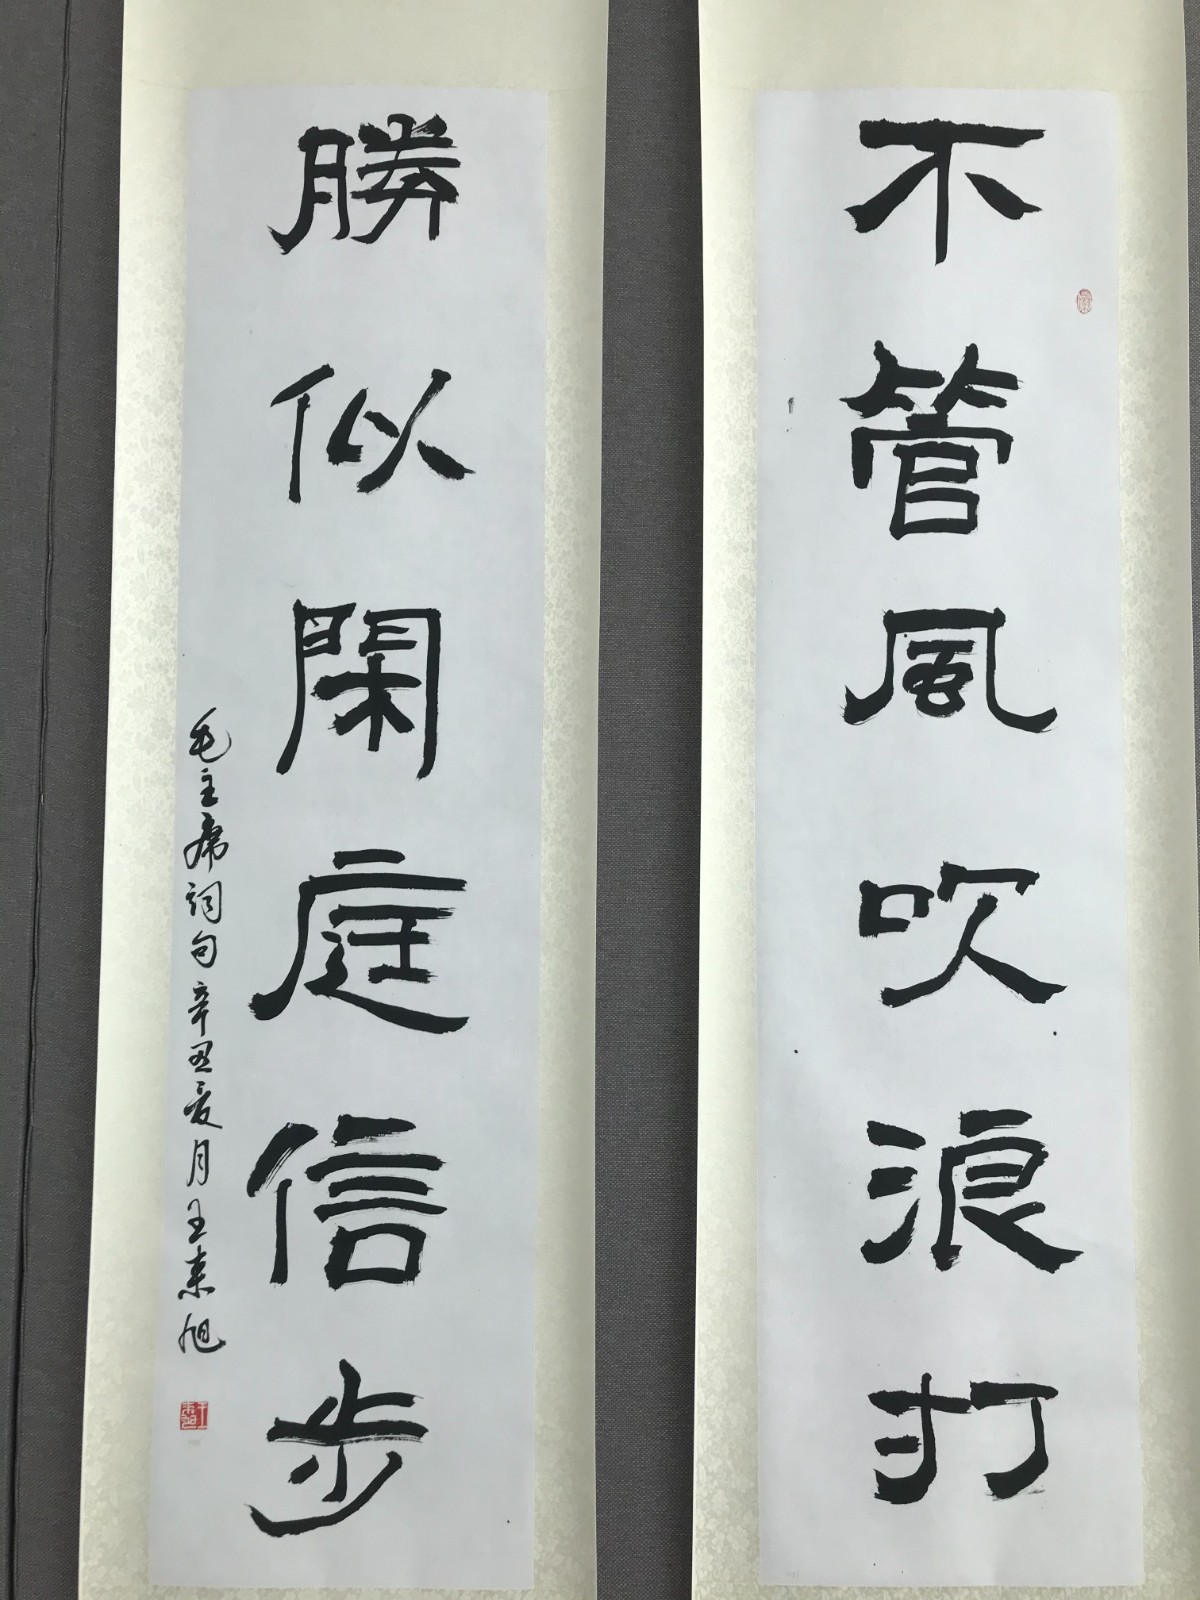 不管風吹浪打
勝似閑庭信步
毛主席詞句辛丑夏月王來旭